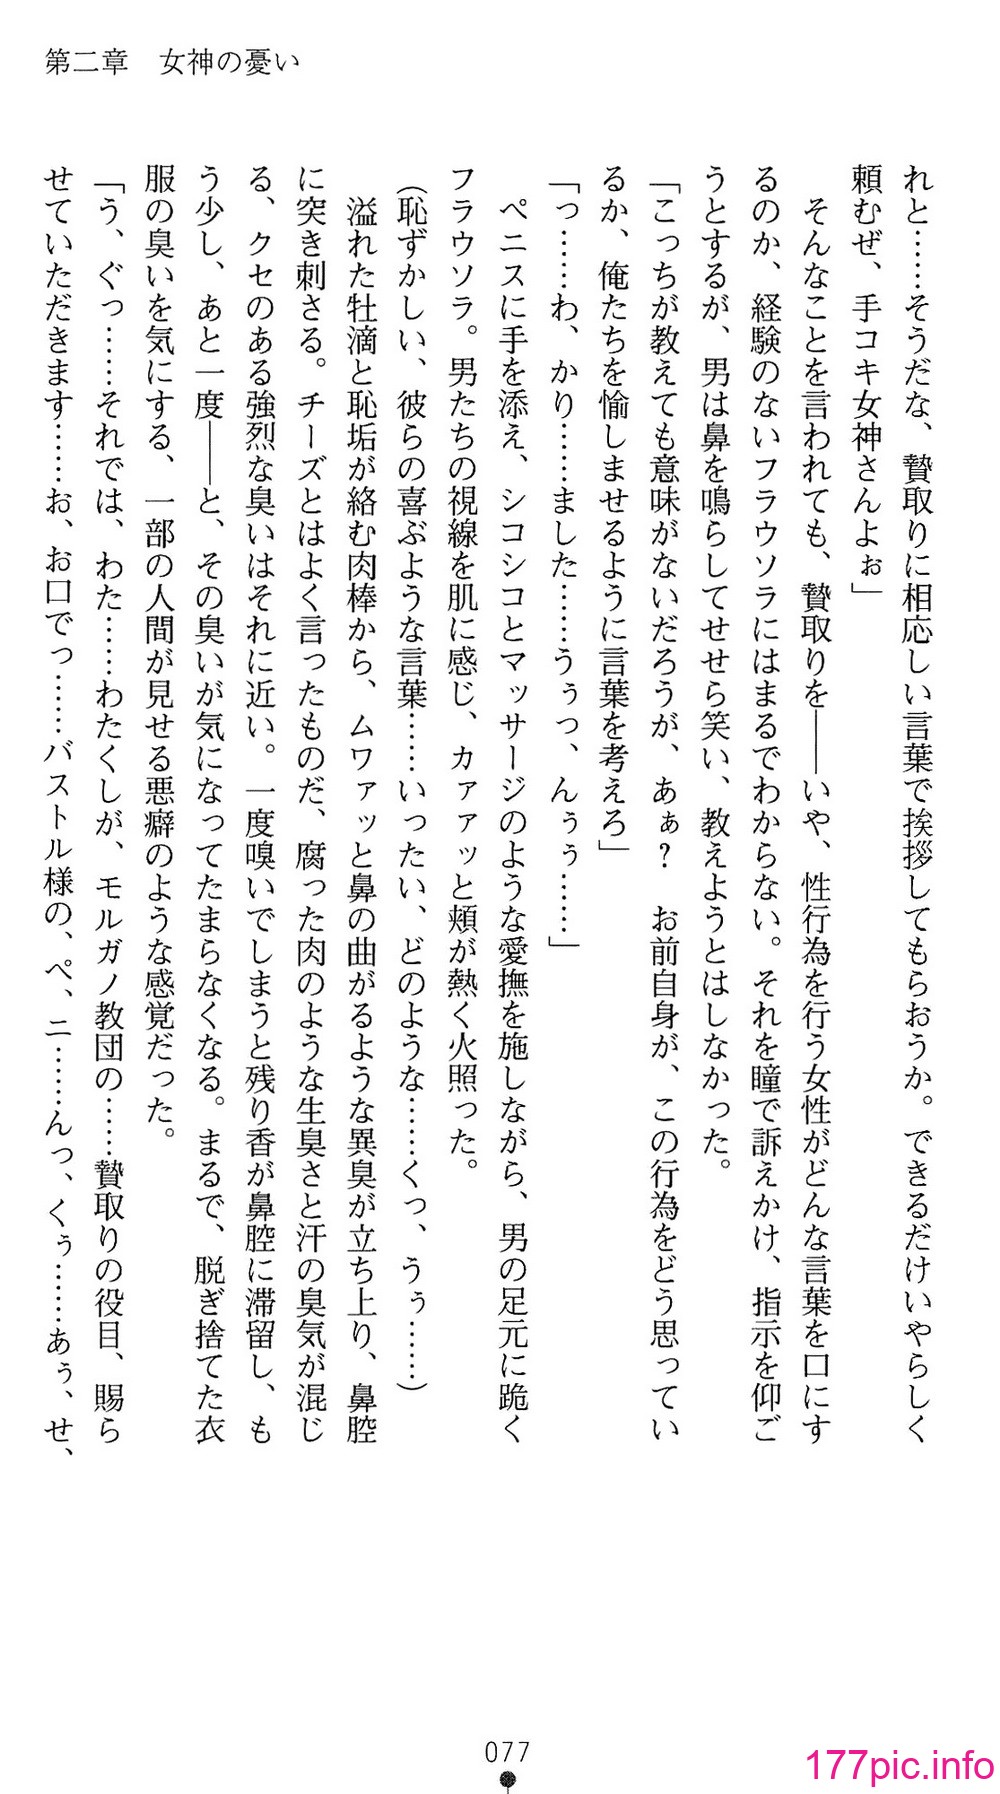 第二章　女神の憂い
れと……そうだな、贄取りに相応しい言葉で挨拶してもらおうか。できるだけいやらしく
頼むぜ、手コキ女神さんよぉ」
そんなことを言われても、贄取りを――いや、性行為を行う女性がどんな言葉を口にす
るのか、経験のないフラウソラにはまるでわからない。それを瞳で訴えかけ、指示を仰ご
うとするが、男は鼻を鳴らしてせせら笑い、教えようとはしなかった。
「こっちが教えても意味がないだろうが、あぁ？　お前自身が、この行為をどう思ってい
るか、俺たちを愉しませるように言葉を考えろ」
「っ……わ、かり……ました……うぅっ、んぅぅ……」
ペニスに手を添え、シコシコとマッサージのような愛撫を施しながら、男の足元に跪く
フラウソラ。男たちの視線を肌に感じ、カァァッと頬が熱く火照った。
（恥ずかしい、彼らの喜ぶような言葉……いったい、どのような……くっ、うぅ……）
溢れた牡滴と恥垢が絡む肉棒から、ムワァッと鼻の曲がるような異臭が立ち上り、鼻腔
に突き刺さる。チーズとはよく言ったものだ、腐った肉のような生臭さと汗の臭気が混じ
る、クセのある強烈な臭いはそれに近い。一度嗅いでしまうと残り香が鼻腔に滞留し、も
う少し、あと一度――と、その臭いが気になってたまらなくなる。まるで、脱ぎ捨てた衣
服の臭いを気にする、一部の人間が見せる悪癖のような感覚だった。
「う、ぐっ……それでは、わた……わたくしが、モルガノ教団の……贄取りの役目、賜ら
せていただきます……お、お口でっ……バストル様の、ペ、ニ……んっ、くぅ……あぅ、せ、
077
177pic.info